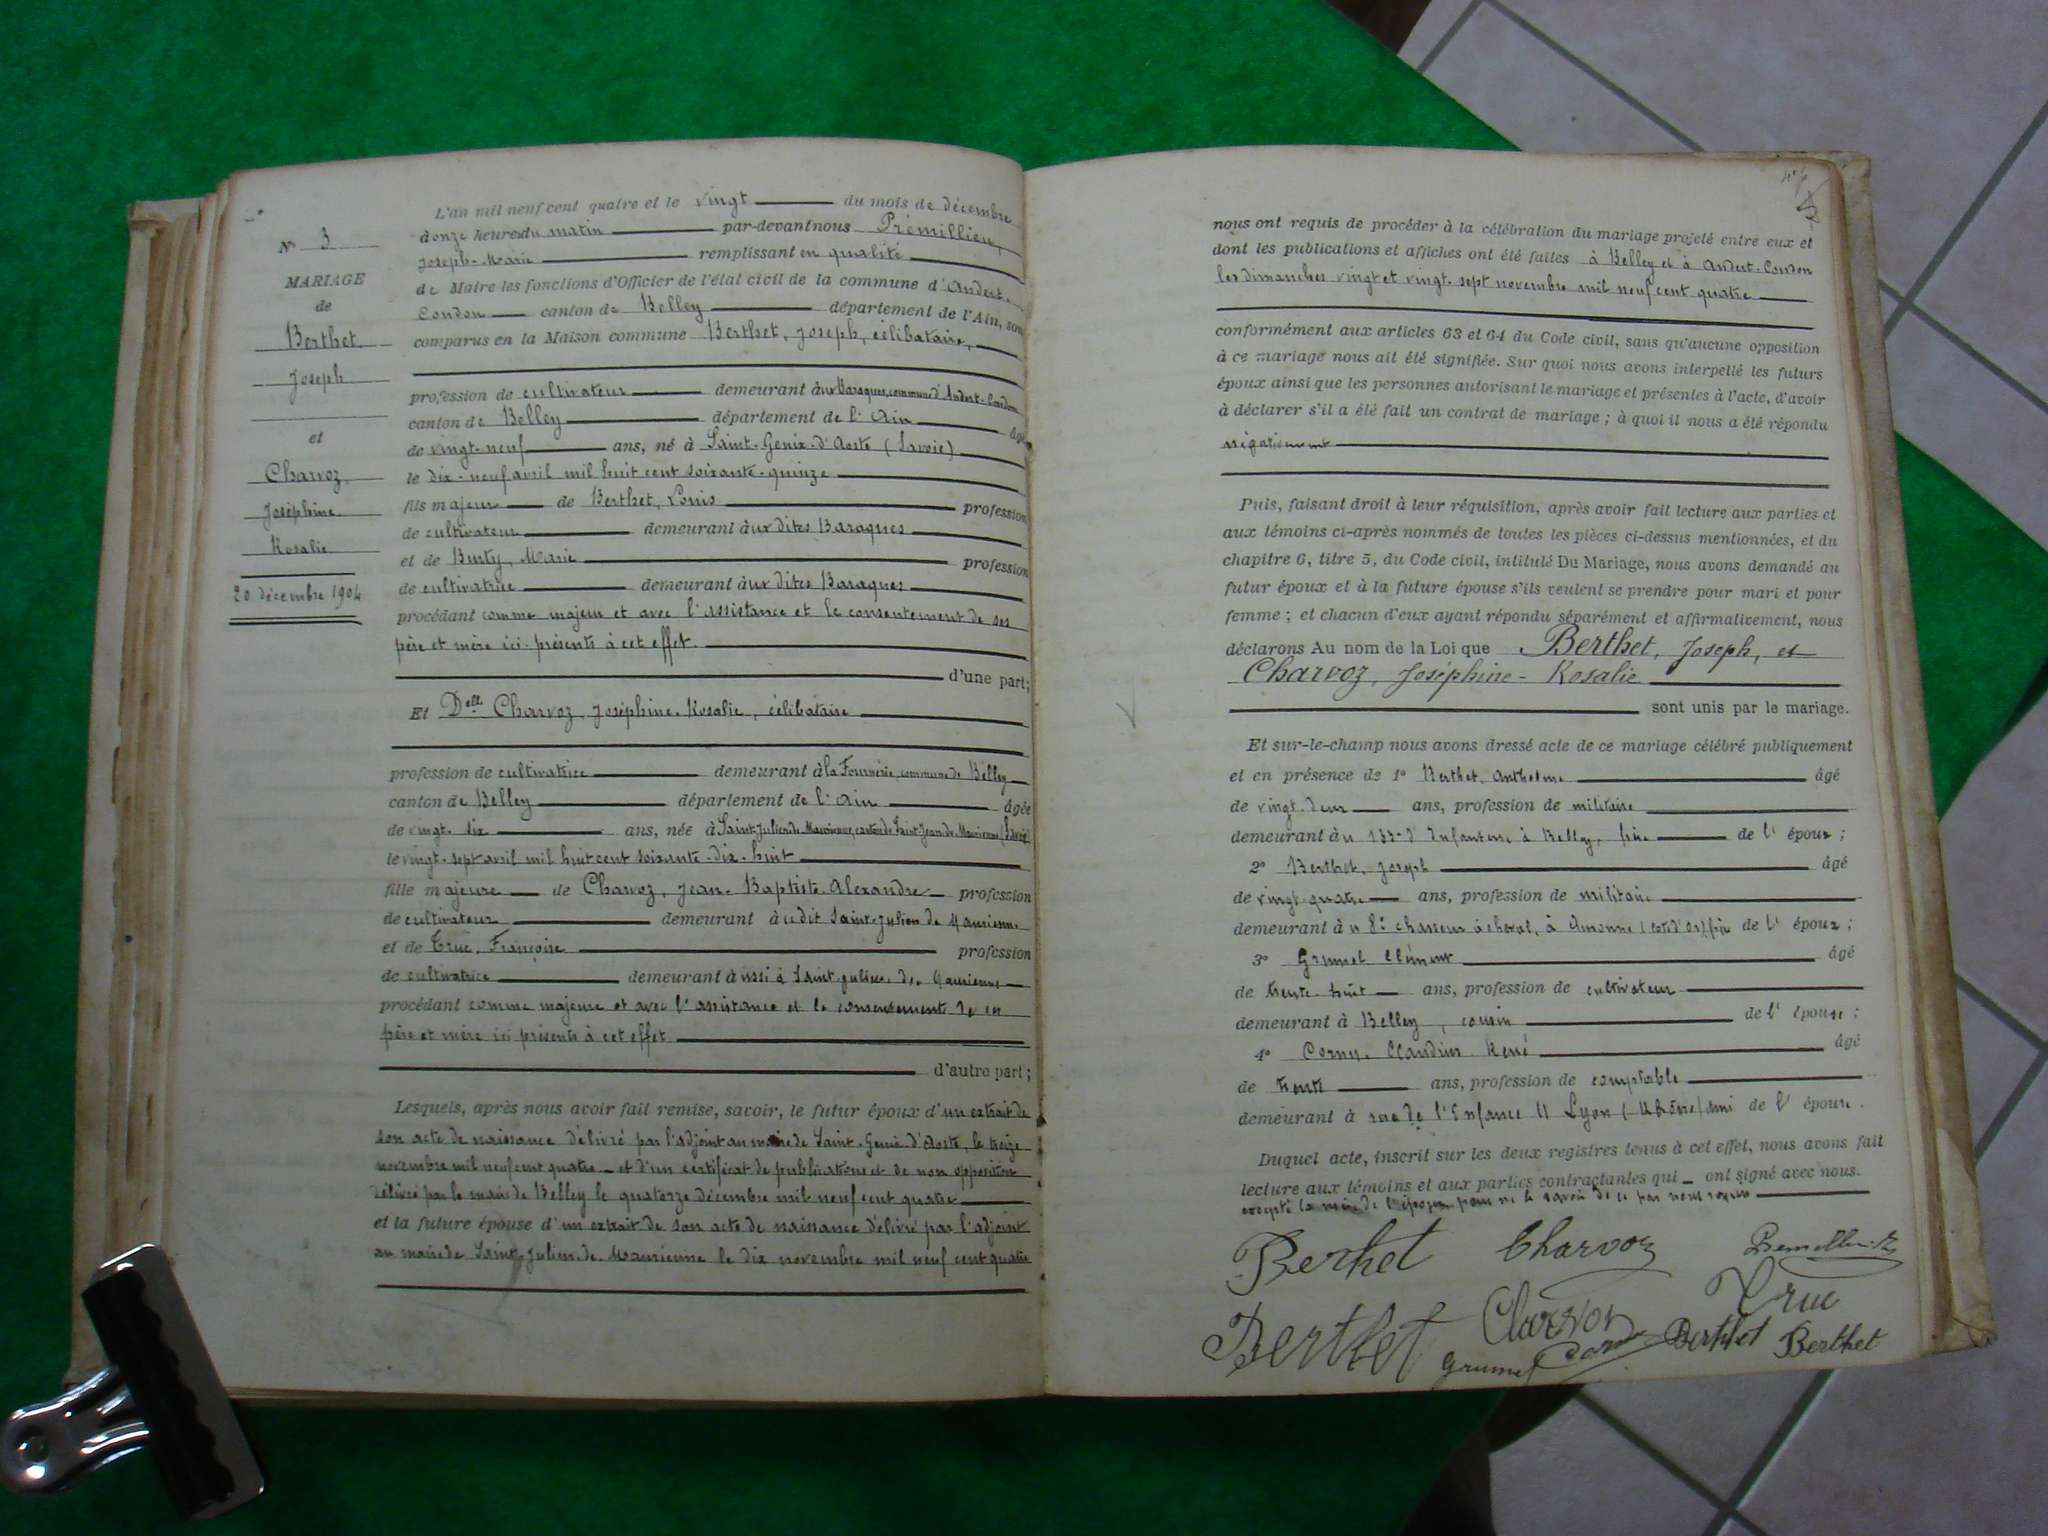 N° 3
MARIAGE
de
Berthet
Joseph
et
Charvoz
Joséphine
Rosalie
20 décembre 1904
L'an mil neuf cent quatre et le vingt du mois de décembre
à onze heures du matin par-devant nous Prémillieu,
Joseph-Marie remplissant en qualité
de Maire les fonctions d'Officier de l'état civil de la commune d'Andert-
Condon canton de Belley département de l'Ain, son
comparus en la Maison commune Berthet, Joseph, célibataire,
profession de cultivateur demeurant aux Baraques, commune d'Andert-Condon
canton de Belley département de l'Ain âgé
de vingt-neuf ans, né à Saint-Genix-d'Aoste (Savoie)
le dix-neuf avril mil huit cent soixante-quinze
fils majeur de Berthet, Louis profession
de cultivateur demeurant aux dites Baraques
et de Burty, Marie profession
de cultivatrice demeurant aux dites Baraques
procédant comme majeur et avec l'assistance et le consentement de ses
père et mère ici présents à cet effet.
d'une part;
Et Delle Charvoz, Joséphine-Rosalie, célibataire
profession de cultivatrice demeurant à la Fournerie, commune de Belley
canton de Belley département de l'Ain âgée
de vingt-six ans, née à Saint-Julien de Maurienne, canton de Saint-Jean de Maurienne (Savoie)
le vingt-sept avril mil huit cent soixante-dix-huit
fille majeure de Charvoz, Jean-Baptiste-Alexandre profession
de cultivateur demeurant à cedit Saint-Julien de Maurienne
et de Truc, Françoise profession
de cultivatrice demeurant aussi à Saint-Julien de Maurienne
procédant comme majeure et avec l'assistance et le consentement de ses
père et mère ici présents à cet effet
d'autre part;
Lesquels, après nous avoir fait remise, savoir, le futur époux d'un extrait de
son acte de naissance délivré par l'adjoint au maire de Saint-Genix-d'Aoste, le treize
novembre mil neuf cent quatre et d'un certificat de publications et de non opposition
délivré par le maire de Belley le quatorze décembre mil neuf cent quatre
et la future épouse d'un extrait de son acte de naissance délivré par l'adjoint
au maire de Saint-Julien de Maurienne le dix novembre mil neuf cent quatre
nous ont requis de procéder à la célébration du mariage projeté entre eux et
dont les publications et affiches ont été faites à Belley et à Andert-Condon
les dimanches vingt et vingt-sept novembre mil neuf cent quatre
conformément aux articles 63 et 64 du Code civil, sans qu'aucune opposition
à ce mariage nous ait été signifiée. Sur quoi nous avons interpellé les futurs
époux ainsi que les personnes autorisant le mariage et présentes à l'acte, d'avoir
à déclarer s'il a été fait un contrat de mariage; à quoi il nous a été répondu
négativement
Puis, faisant droit à leur réquisition, après avoir fait lecture aux parties et
aux témoins ci-après nommés de toutes les pièces ci-dessus mentionnées, et du
chapitre 6, titre 5, du Code civil, intitulé Du Mariage, nous avons demandé au
futur époux et à la future épouse s'ils veulent se prendre pour mari et pour
femme; et chacun d'eux ayant répondu séparément et affirmativement, nous
déclarons Au nom de la Loi que Berthet, Joseph, et
Charvoz, Joséphine-Rosalie
sont unis par le mariage.
Et sur-le-champ nous avons dressé acte de ce mariage célébré publiquement
et en présence de 1° Berthet, Anthelme âgé
de vingt-deux ans, profession de militaire
demeurant au 133e d'Infanterie à Belley, frère de l'époux;
2° Berthet, Joseph âgé
de vingt-quatre ans, profession de militaire
demeurant au 8e chasseur à cheval, à Auxonne (Côte d'Or) de l'époux;
3° Grumel Clément âgé
de trente-huit ans, profession de cultivateur
demeurant à Belley, cousin de l'épouse;
4° Claudius René âgé
de trente ans, profession de comptable
demeurant à rue de l'Enfance 11 Lyon (Rhône) ami de l'époux.
Duquel acte, inscrit sur les deux registres tenus à cet effet, nous avons fait
lecture aux témoins et aux parties contractantes qui ont signé avec nous.
excepté la mère de l'époux pour ne le savoir de ce par nous requis
Berthet Charvoz
Charvoz Truc
Berthet Grumel Berthet Berthet